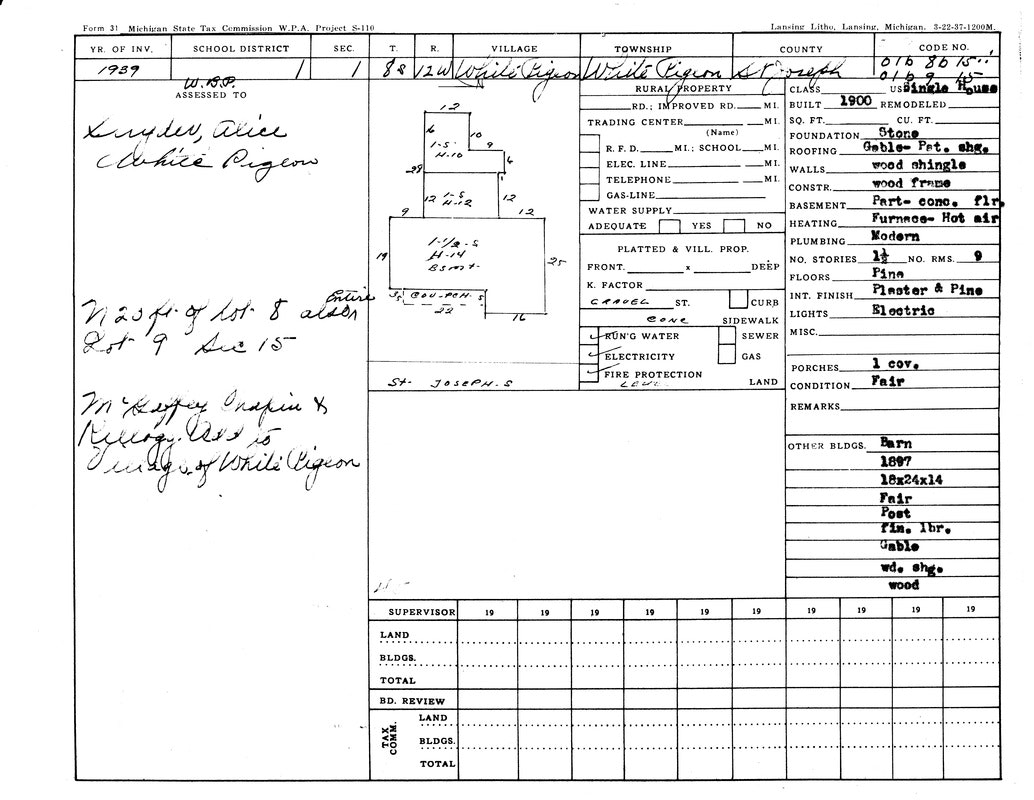 Form 31 Michigan State Tax Commission W.P.A. Project S-110
Lansing Litho, Lansing, Michigan. 3-22-37-1200M.
YR. OF INV. SCHOOL DISTRICT SEC. T. R. VILLAGE TOWNSHIP COUNTY CODE NO.
1939 1 1 8S 12W White Pigeon White Pigeon St Joseph 01b 8b 15
01b 9 15
W.B.P.
ASSESSED TO
Snyder, Alice
White Pigeon
N 20 ft. of Lot 8 also Entire
Lot 9 Sec 15
Chapin &
Kellogg Add to
Village of White Pigeon
12
6
10
1-S
H-10
9
6
28
1
12
1-S
H-12
12
9
12
19
1-1/2-S
H-14
Bsmt.
25
3
5
COV-PCH.
5
22
16
St. JOSEPH. S
RURAL PROPERTY
RD.; IMPROVED RD. MI.
TRADING CENTER MI.
(Name)
R. F. D. MI.; SCHOOL MI.
ELEC. LINE MI.
TELEPHONE MI.
GAS-LINE
WATER SUPPLY
ADEQUATE YES NO
PLATTED & VILL. PROP.
FRONT. x DEEP
K. FACTOR
GRAVEL ST. CURB
CONC SIDEWALK
✓ RUN'G WATER SEWER
✓ ELECTRICITY GAS
✓ FIRE PROTECTION
LEVEL LAND
CLASS USE Single House
BUILT 1900 REMODELED
SQ. FT. CU. FT.
FOUNDATION Stone
ROOFING Gable- Pat. shg.
WALLS wood shingle
CONSTR. wood frame
BASEMENT Part- conc. flr.
HEATING Furnace- Hot air
PLUMBING Modern
NO. STORIES 1½ NO. RMS. 9
FLOORS Pine
INT. FINISH Plaster & Pine
LIGHTS Electric
MISC.
PORCHES 1 cov.
CONDITION Fair
REMARKS
OTHER BLDGS. Barn
1897
18x24x14
Fair
Post
fin. lbr.
Gable
wd. shg.
wood
SUPERVISOR 19 19 19 19 19 19 19 19 19
LAND
BLDGS.
TOTAL
BD. REVIEW
TAX COMM.
LAND
BLDGS.
TOTAL